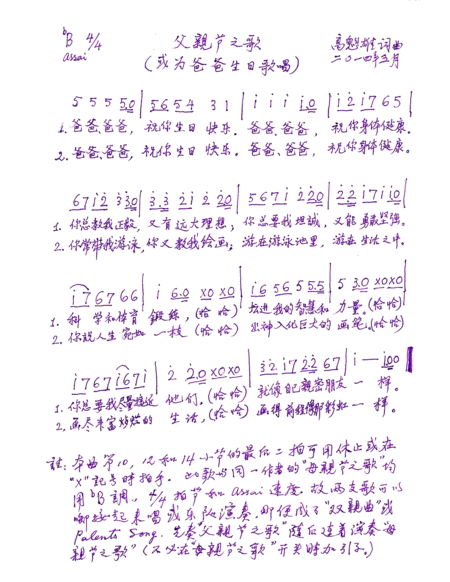 ᵇB 4/4
assai
父親节之歌
(或为爸爸生日歌唱)
高魁雄词曲
二〇一四年三月
5 5 5 5 5.0 | 5 6 5 4 3 1 | i i i i.0 | i 2 i 7 6 5 |
1. 爸爸、爸爸, 祝你生日 快乐. 爸爸、爸爸, 祝你身体健康.
2. 爸爸、爸爸, 祝你生日 快乐. 爸爸、爸爸, 祝你身体健康.
6 7 i 2 3 3 0 | 3. 3 2 i 2 2 0 | 5 6 7 i 2 2 0 | 2 2 i 7 i i 0 |
1. 你总教我正教, 又有远大理想; 你总要我坦诚, 又能勇毅坚强.
2. 你常带我游泳, 你又教我绘画; 游在游泳池里, 游在生活之中.
i 7 6 7 6 6 | i 6.0 x0 x0 | i 6 5 6 5 5.5 | 5 3.0 x0x0 |
1. 科 学和体育 鍛练, (恰恰) 找进我的智慧和 力量. (恰恰)
2. 你说人生 宛如 一枝 (恰恰) 出神入化巨大的 画笔. (恰恰)
i 7 6 7 i 6 7 i | 2 2.0 x0x0 | 3 2 i 7 2 2 6 7 | i — i00 |
1. 你总要我尽量接近 他们. (恰恰) 就像自己親密朋友 一 样.
2. 画尽丰富灿烂的 生活, (恰恰) 画得前程像那彩虹 一 样.
註: 本曲第10, 12和14小节的最后二拍可用休止或在
"X"記号时拍手. 此歌与同一作者的"母親节之歌"均
用ᵇB調, 4/4拍节和Assai速度. 故两支歌可以
啣接起来唱或乐队演奏, 即便成了"双親曲"或
Palents Song. 先奏"父親节之歌"随后连着演奏"母
親节之歌" (不必在"母親节之歌"开头时加引子.)